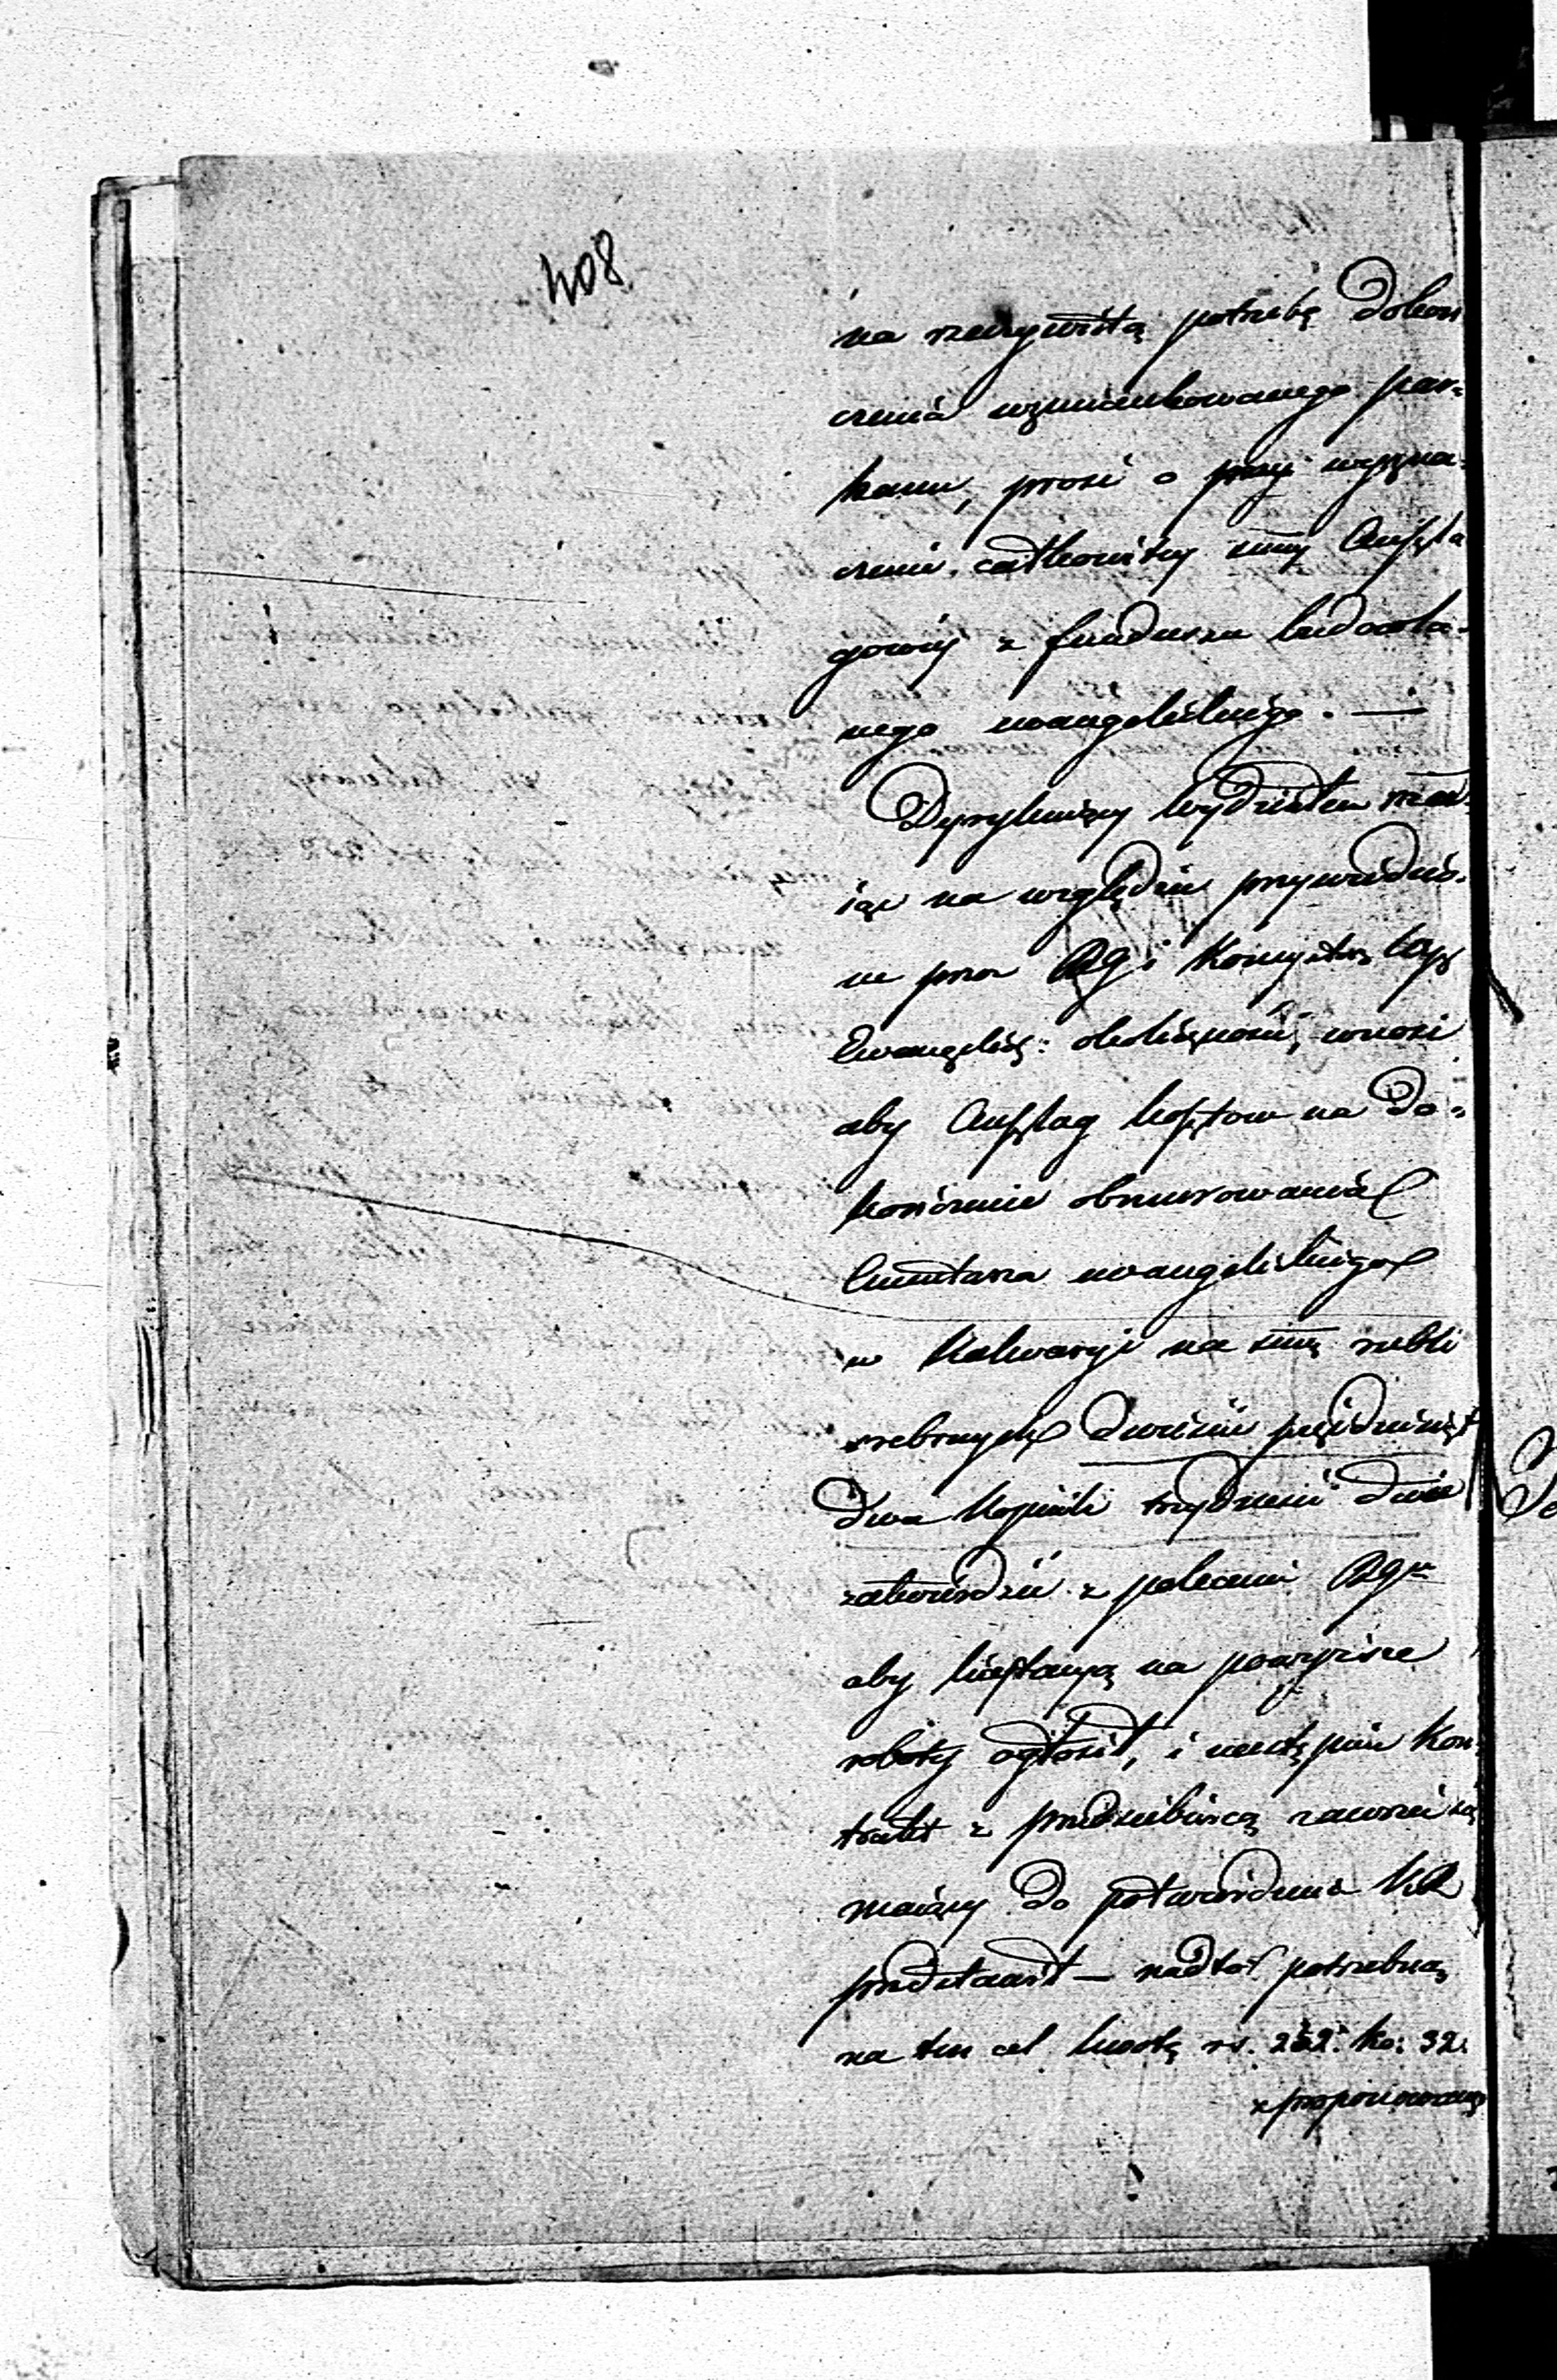 408
na rzeczywistą potrzebę dokoń
czenia wzmiankowanego par=
kanu, prosi o przy wyzna=
czenie całkowitey sumy Anszla
gowéy z funduszu budowla=
nego ewangelickiego. —
Dyrektuiący Wydziałem maiąc
iąc na względzie przywiedzio=
ne przez RG i
Ewangelic: okoliczności, wnosi
aby Anszlag kosztow na do=
kończenie obmurowania
Cmentarza ewangelickiego
w Kalwaryi na sumę rubli
srebrnych dwieście pięćdziesiąt
dwa kopiiek trzydzieści dwie
zatwierdzić z polecenia RGu
aby licytacyą na powyższe
roboty ogłosił, i następnie Kon=
trakt z przedsiębiercą zawrzeć się
maiący do potwierdzenia KR
przedstawił — nadto potrzebną
na ten cel kwotę rs. 252. ko: 32.
zproponowaną